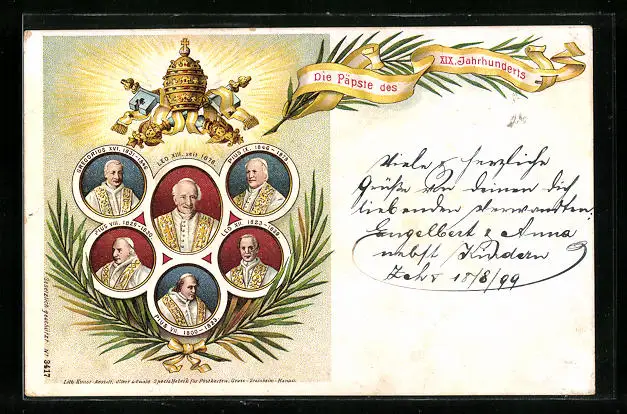 Die Päpste des XIX. Jahrhunderts
GREGORIUS XVI. 1831-1846
LEO XIII. seit 1878.
PIUS IX. 1846-1878
PIUS VIII. 1829-1830
LEO XII. 1823-1829
PIUS VII. 1800-1823
Gesetzlich geschützt No 3417
Lith. Kunst-Anstalt, Gross-Steinheim-Hanau. Specialfabrik für Postkarten,
Viele & herzliche
Grüße von deinen dich
liebenden Verwandten.
Engelbert & Anna
nebst Kindern
18/8/99